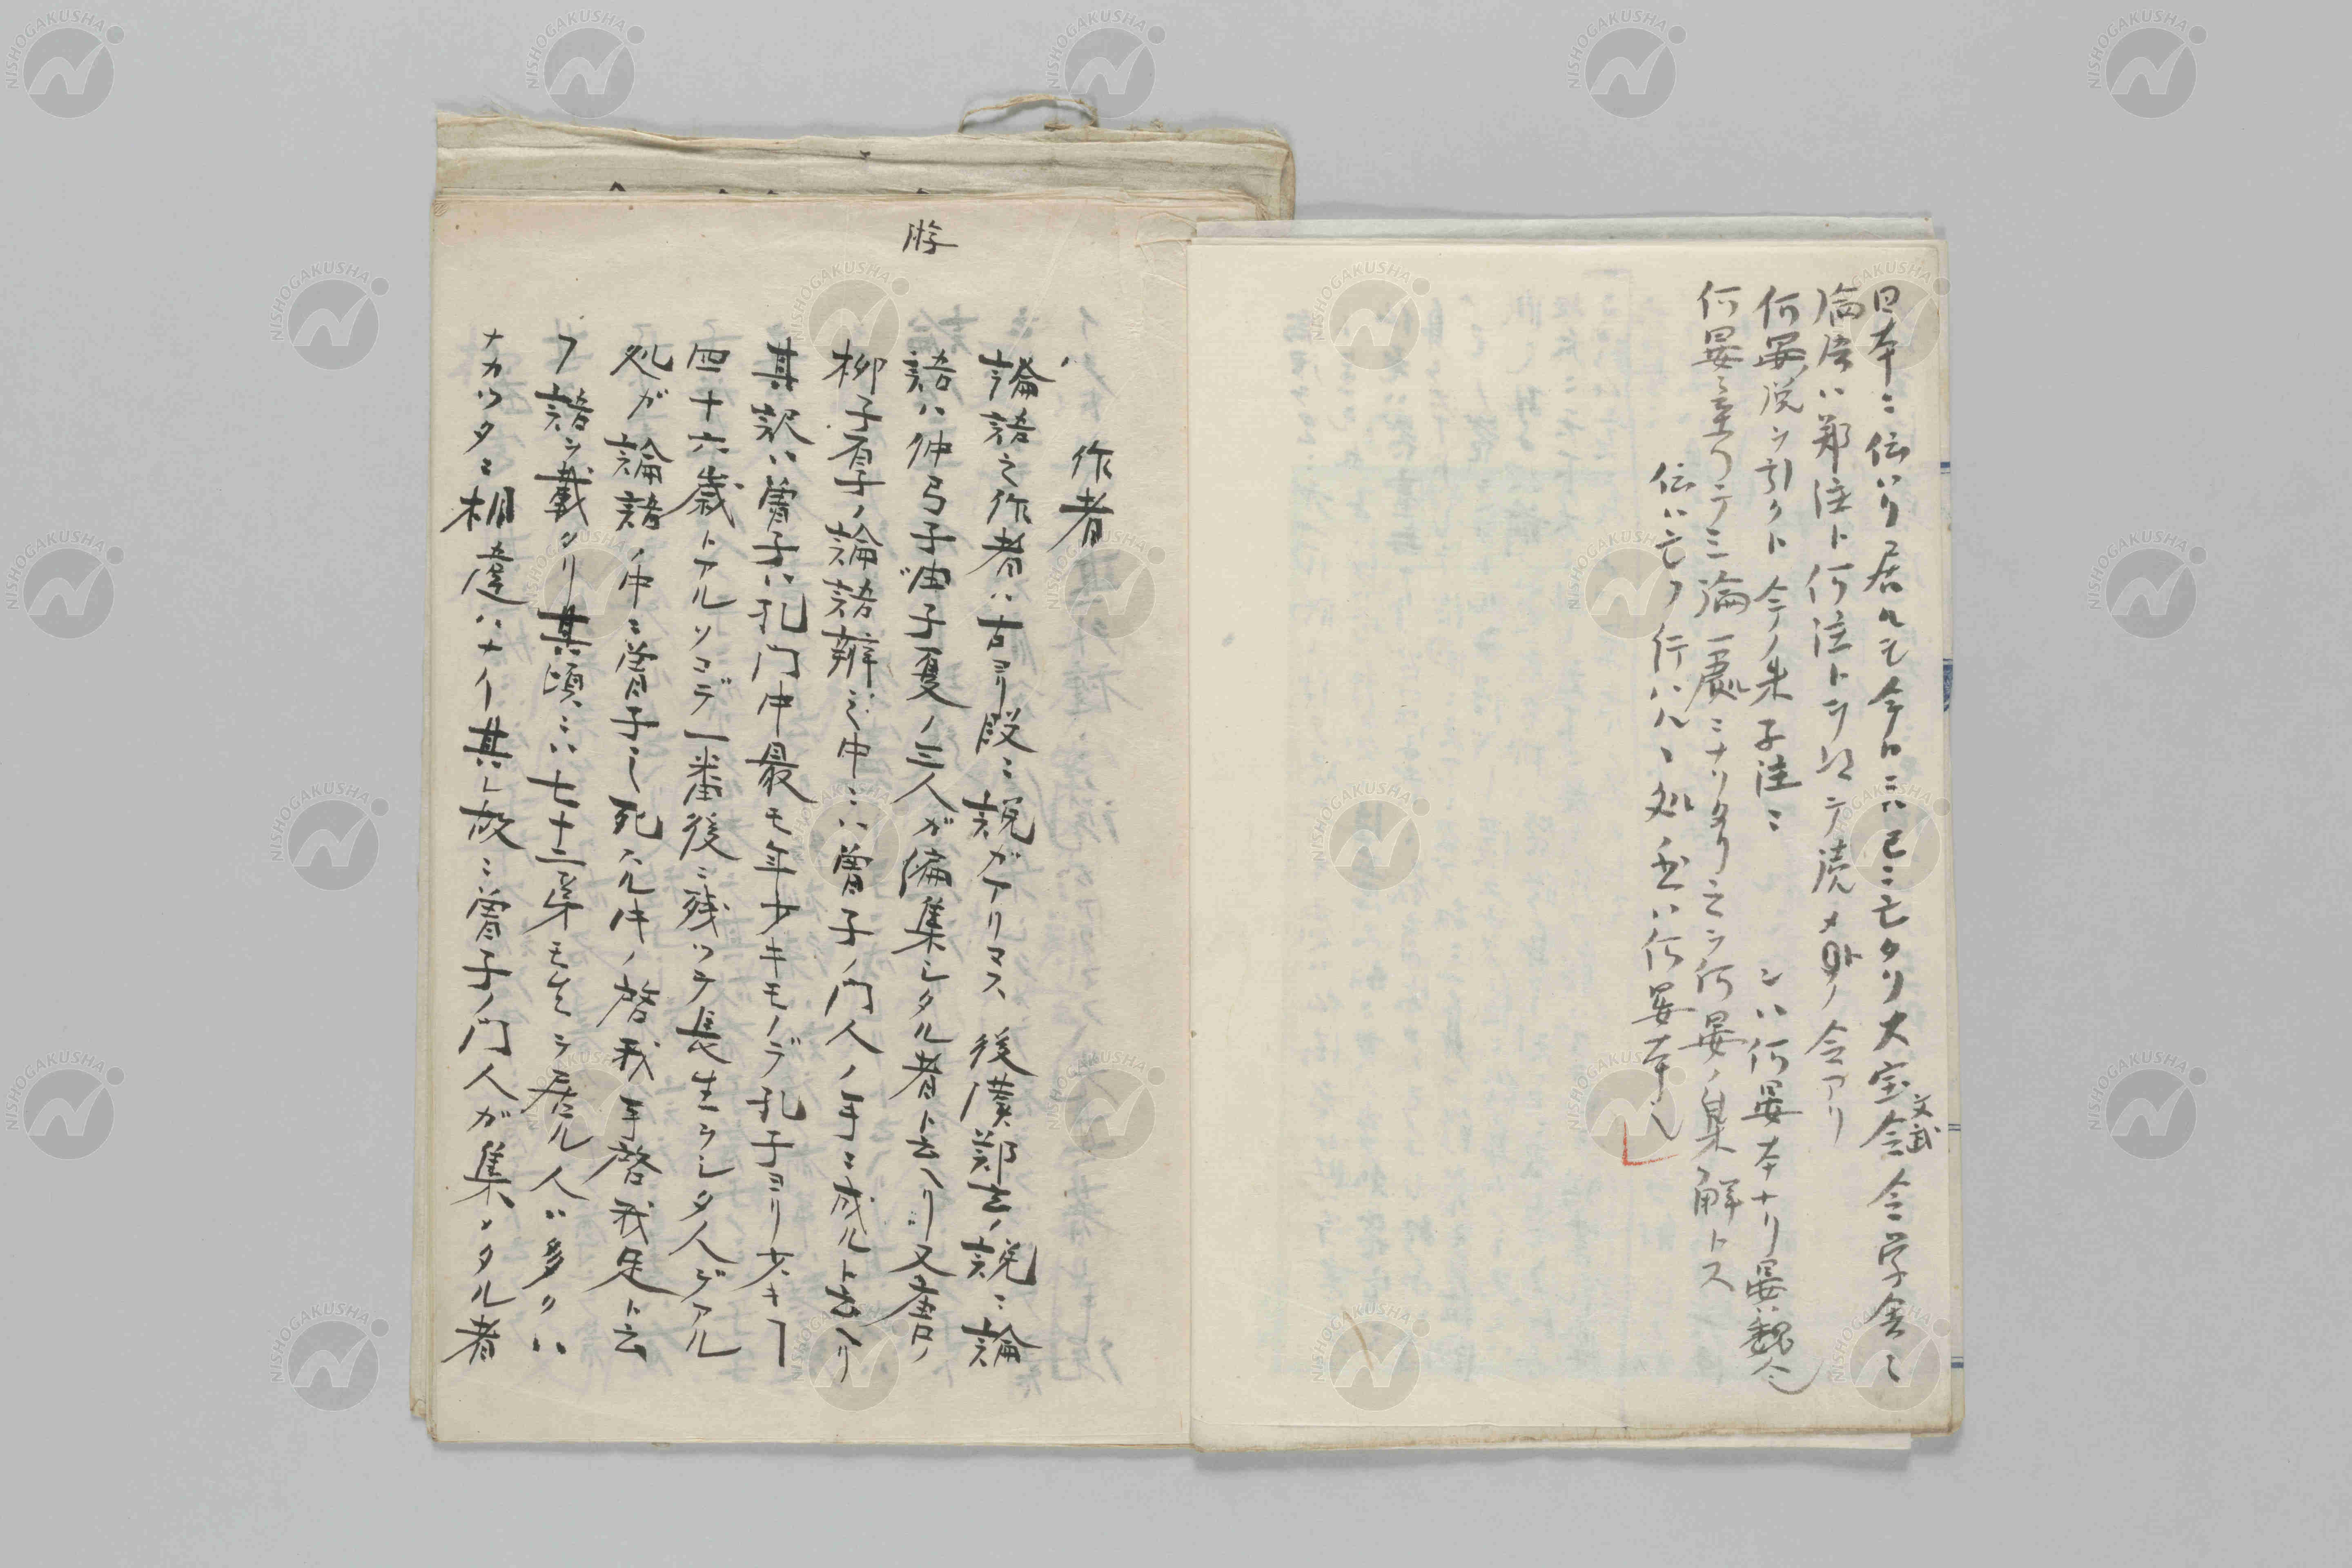 日本ニ伝ハリ居レモ今日ニハ已ニ亡タリ大宝令令学舎之
文武
論語ハ鄭注ト何注トヲ以テ読メ
令アリ
何晏説ヲ引クト今ノ朱子注ニ
ハ何晏本ナリ晏ハ魏人
何晏ニ至
テ三論一處ニナリタリ之ヲ何晏ノ集解トス
伝ハ亡
行ハルヽ処
ハ何晏本
作者
論語之作者ハ古ヨリ段ニ説ガアリマス後漢鄭玄ノ説ニ論
語ハ仲弓子游子夏ノ三人ガ編集シタル者ト云ヘリ又唐ノ
游
柳子厚ノ論語辨之中ニハ曽子ノ門人ノ手ニ成ルト云ヘリ
其訳ハ曽子ハ孔門中最モ年少キモノデ孔子ヨリ少キヿ
四十六歳トアルソコデ一番後ニ残ツテ長生ヲシタ人デアル
処ガ論語ノ中ニ曽子之死
ノ啓我手啓我足ト云
フ語ヲ載タリ其頃ニハ七十二
モ
居ル人ハ多クハ
ナカツタニ相違ハナイ其レ故ニ曽子ノ門人ガ集メタル者
NISHOGAKUSHA